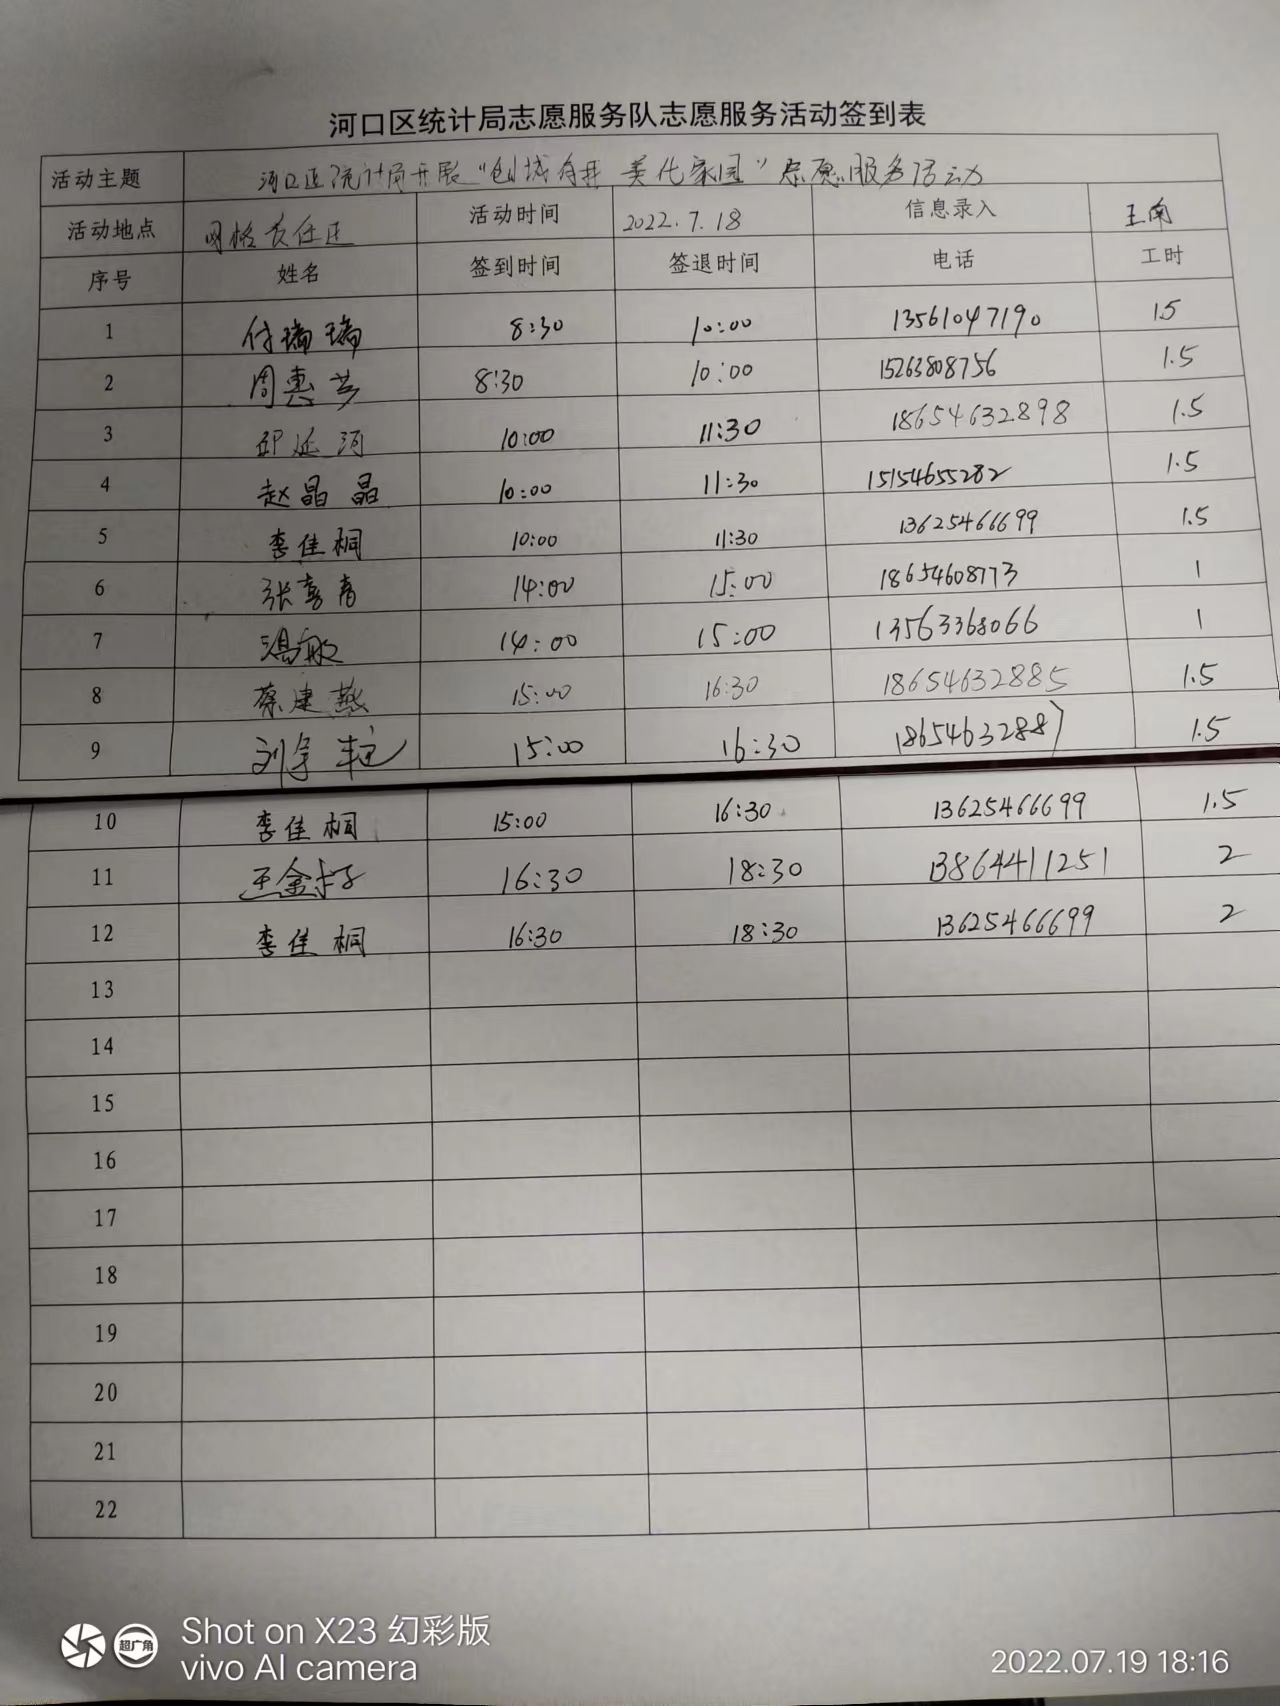 河口区统计局志愿服务队志愿服务活动签到表
活动主题 河口区统计局开展“创城有我 美化家园”志愿服务活动
活动地点 网格责任区 活动时间 2022.7.18 信息录入 王南
序号 姓名 签到时间 签退时间 电话 工时
1 付瑞瑞 8:30 10:00 13561047190 1.5
2 周惠芳 8:30 10:00 15263808756 1.5
3 邱延河 10:00 11:30 18654632898 1.5
4 赵晶晶 10:00 11:30 15154655282 1.5
5 李佳桐 10:00 11:30 13625466699 1.5
6 张喜春 14:00 15:00 18654608773 1
7 冯敏 14:00 15:00 13563368066 1
8 蔡建燕 15:00 16:30 18654632885 1.5
9 刘 15:00 16:30 18654632887 1.5
10 李佳桐 15:00 16:30 13625466699 1.5
11 王金 16:30 18:30 13864411251 2
12 李佳桐 16:30 18:30 13625466699 2
13
14
15
16
17
18
19
20
21
22
超广角
Shot on X23 幻彩版
vivo AI camera
2022.07.19 18:16